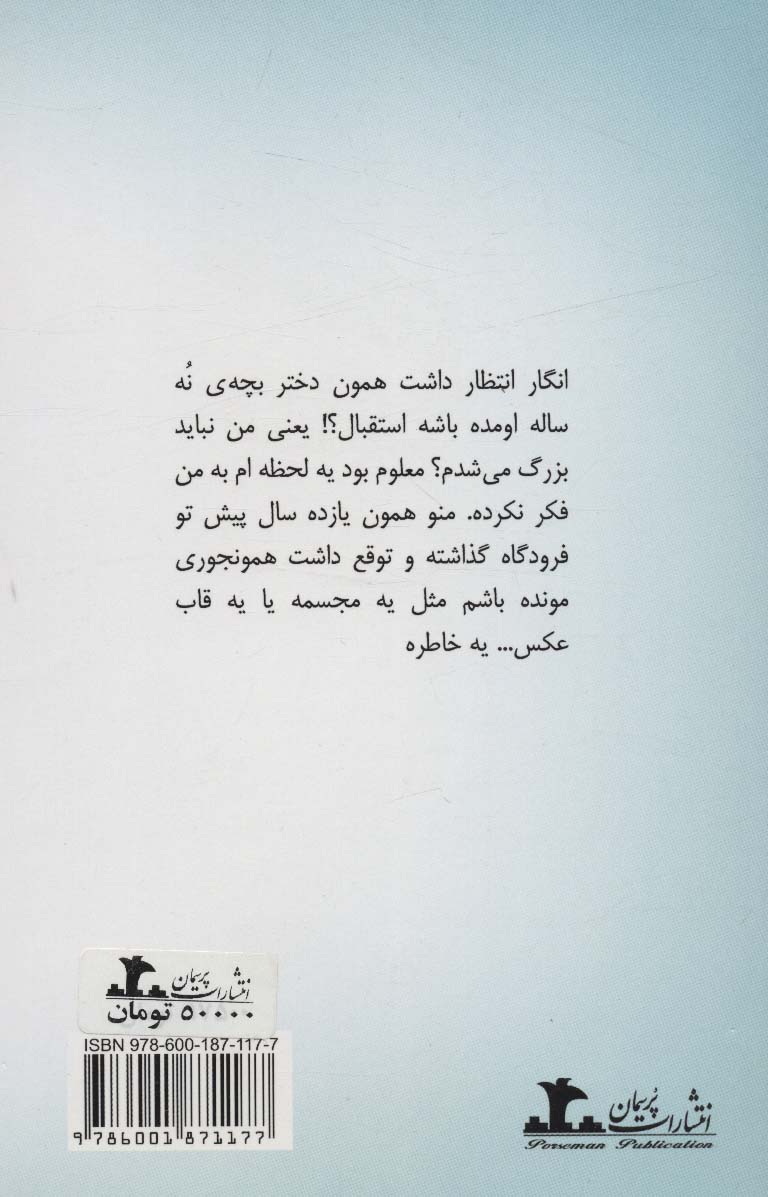 انگار انتظار داشت همون دختر بچه‌ی نُه
ساله اومده باشه استقبال؟! یعنی من نباید
بزرگ می‌شدم؟ معلوم بود یه لحظه ام به من
فکر نکرده. منو همون یازده سال پیش تو
فرودگاه گذاشته و توقع داشت همونجوری
مونده باشم مثل یه مجسمه یا یه قاب
عکس... یه خاطره
انتشارات پرسمان
۵۰۰۰۰ تومان
ISBN 978-600-187-117-7
9 786001 871177
انتشارات پُرسمان
Porseman Publication